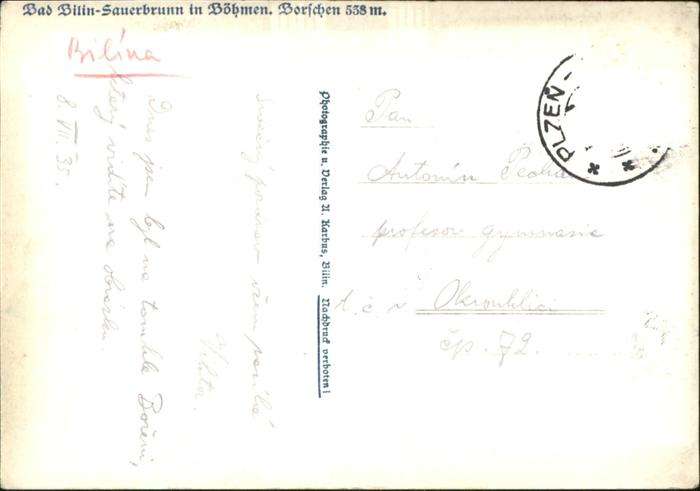 Bad Bilin-Sauerbrunn in Böhmen. Borschen 538 m.
Bilina
8. VIII. 35.
Dnes jsem byl na tomhle Bořeni,
který vidíte na obrázku.
pozdrav všem posílá
Photographie u. Verlag A. Karbus, Bilin. Nachdruck verboten!
PLZEŇ
Pan
Antonín
profesor gymnasia
t. č. v Okrouhlici
čp. 72.